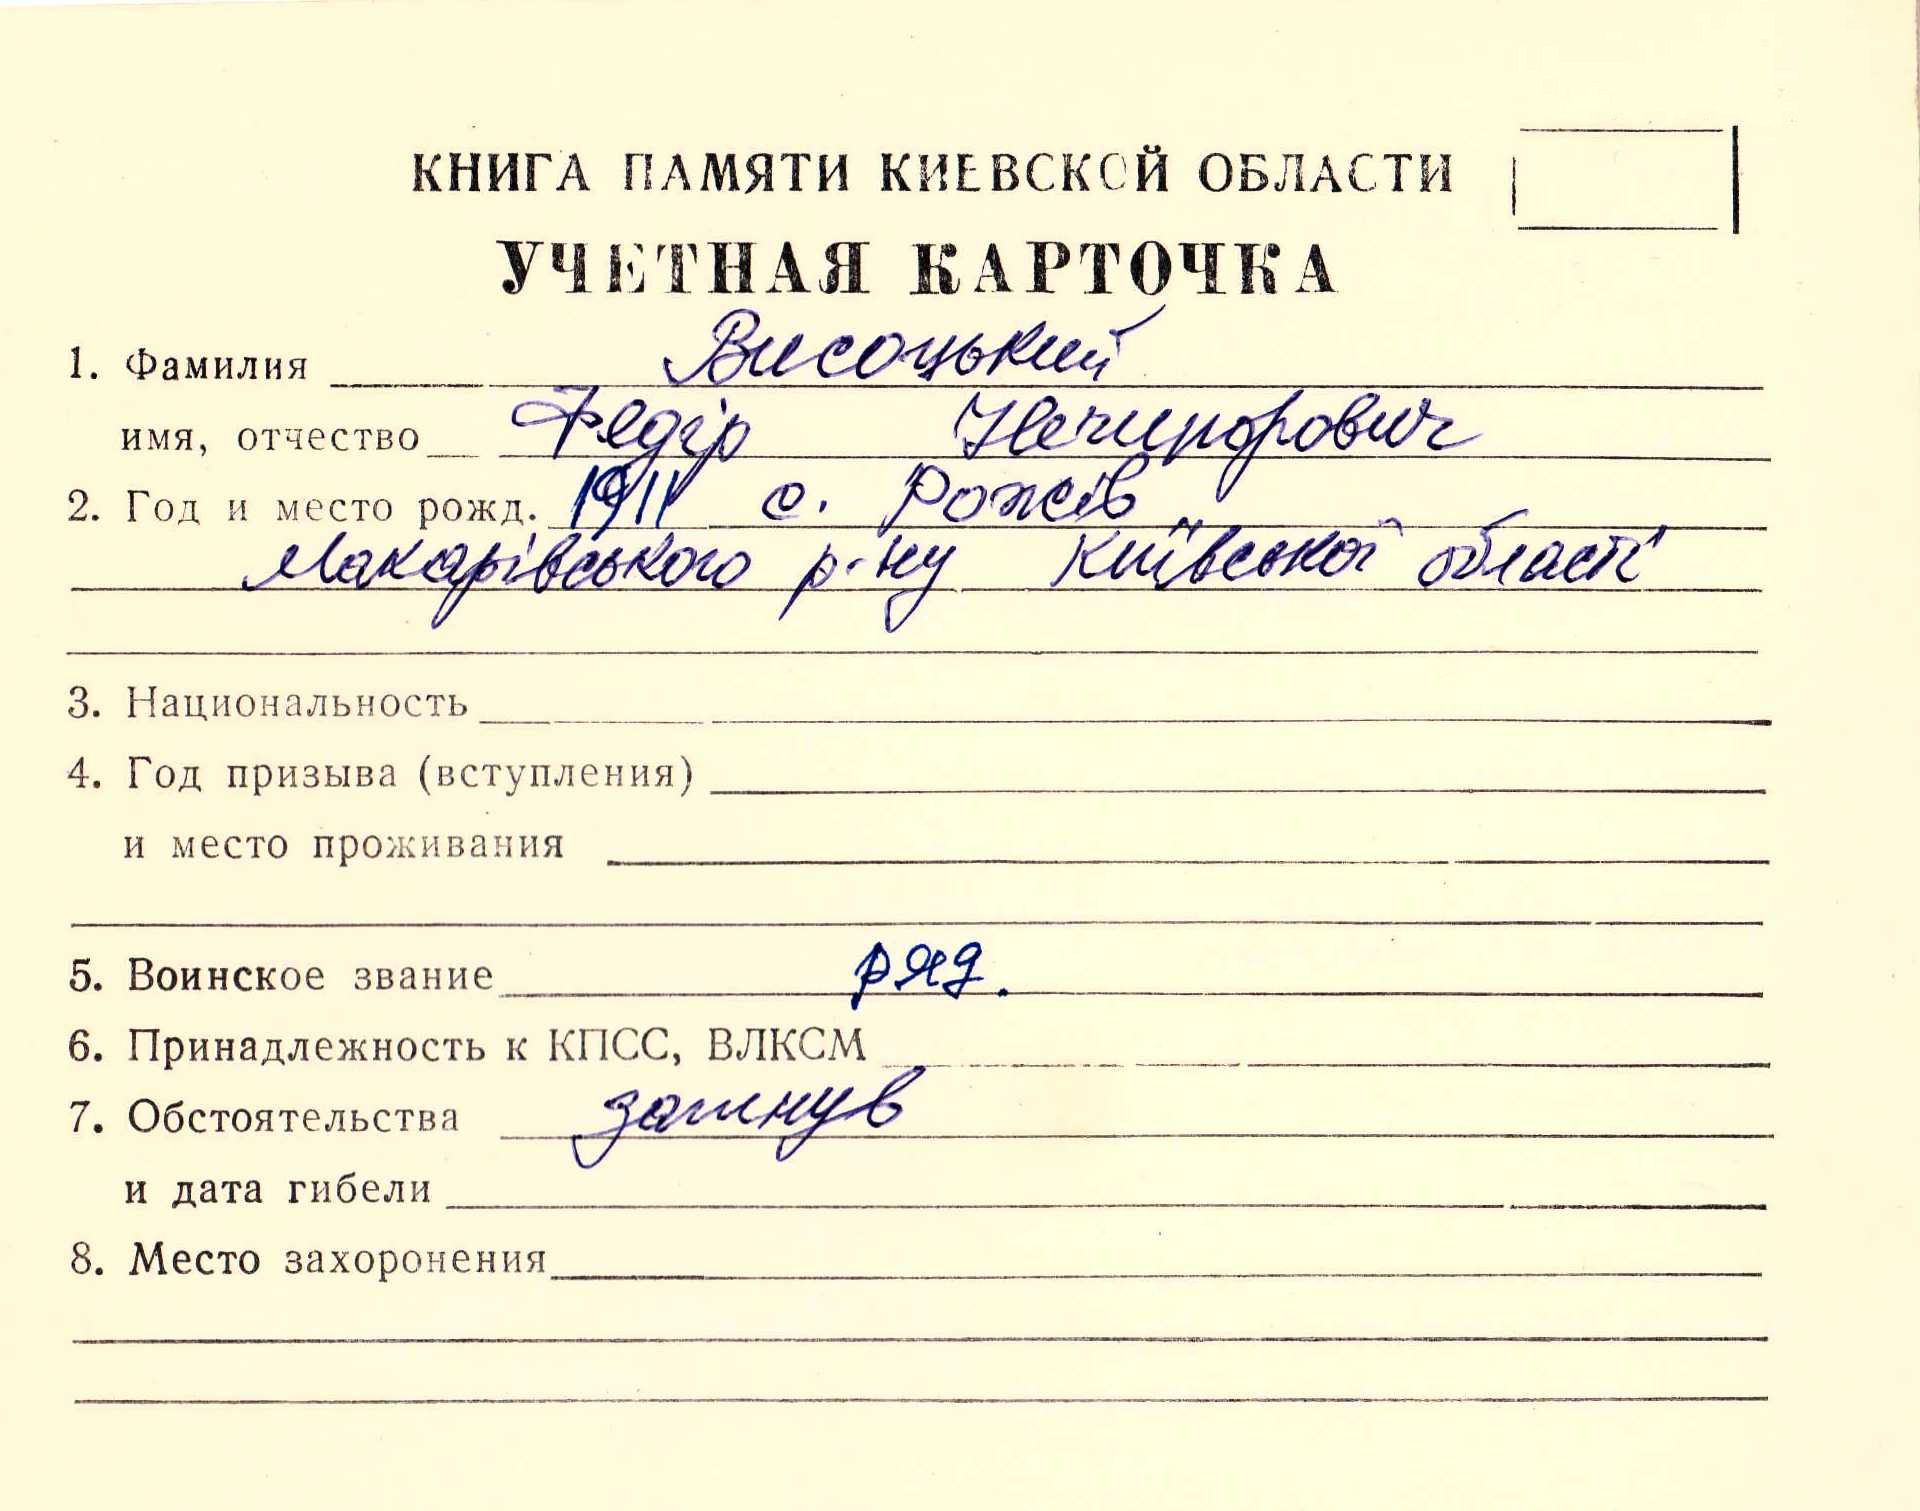 КНИГА ПАМЯТИ КИЕВСКОЙ ОБЛАСТИ
УЧЕТНАЯ КАРТОЧКА
1. Фамилия Висоцький
имя, отчество Федір Нечипорович
2. Год и место рожд. 1911 с. Рожів
Макарівського р-ну Київської області
3. Национальность
4. Год призыва (вступления)
и место проживания
5. Воинское звание ряд.
6. Принадлежность к КПСС, ВЛКСМ
7. Обстоятельства загинув
и дата гибели
8. Место захоронения